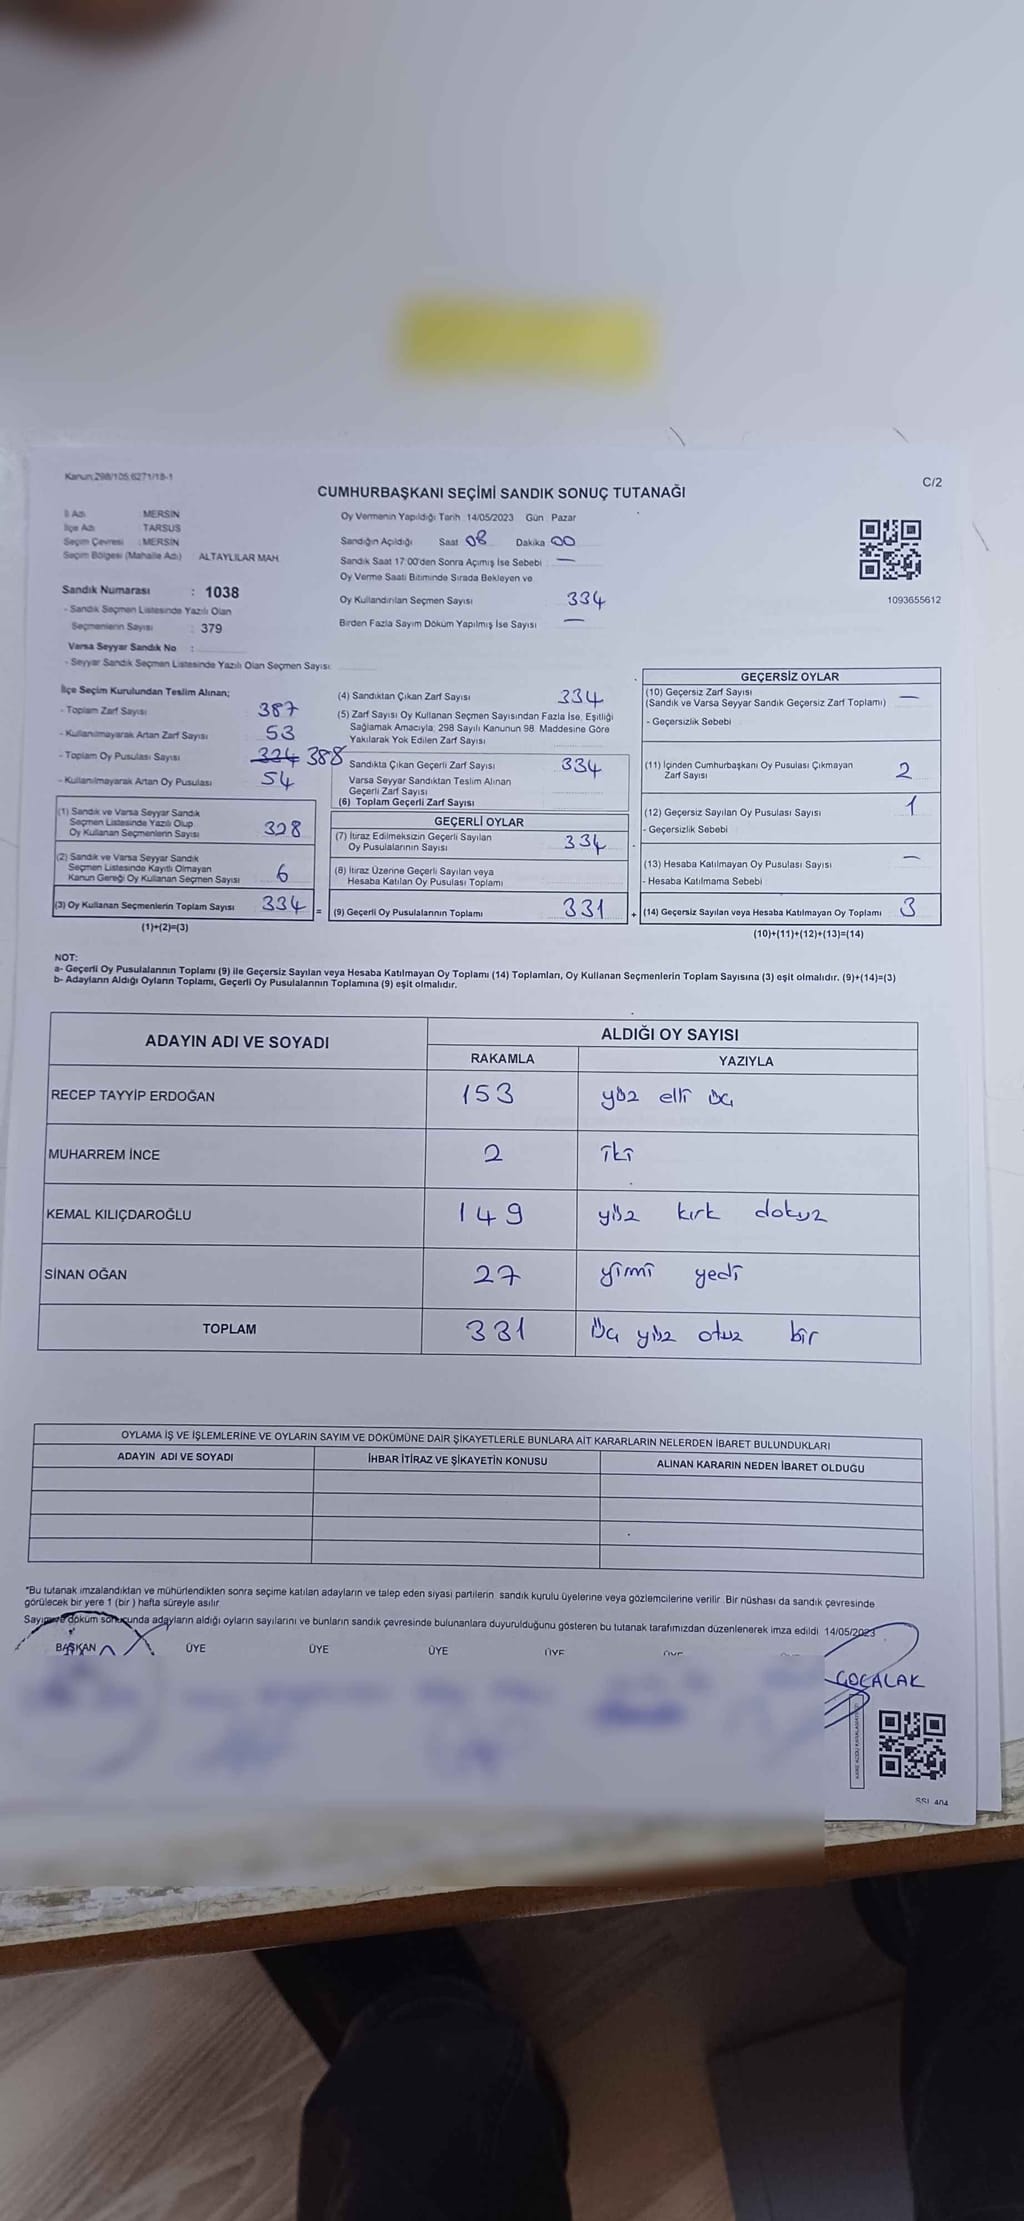 Kanun:298/105;6271/18-1
C/2
CUMHURBAŞKANI SEÇİMİ SANDIK SONUÇ TUTANAĞI
İl Adı MERSİN
İlçe Adı TARSUS
Seçim Çevresi : MERSİN
Seçim Bölgesi (Mahalle Adı) ALTAYLILAR MAH.
Oy Vermenin Yapıldığı Tarih 14/05/2023 Gün Pazar
Sandığın Açıldığı Saat 08 Dakika 00
Sandık Saat 17:00'den Sonra Açımış İse Sebebi —
Oy Verme Saati Bitiminde Sırada Bekleyen ve
Oy Kullandırılan Seçmen Sayısı 334
Birden Fazla Sayım Döküm Yapılmış İse Sayısı —
1093655612
Sandık Numarası : 1038
- Sandık Seçmen Listesinde Yazılı Olan
Seçmenlerin Sayısı : 379
Varsa Seyyar Sandık No :
- Seyyar Sandık Seçmen Listesinde Yazılı Olan Seçmen Sayısı:
İlçe Seçim Kurulundan Teslim Alınan;
- Toplam Zarf Sayısı 387
- Kullanılmayarak Artan Zarf Sayısı 53
- Toplam Oy Pusulası Sayısı 324 388
- Kullanılmayarak Artan Oy Pusulası 54
(1) Sandık ve Varsa Seyyar Sandık
Seçmen Listesinde Yazılı Olup
Oy Kullanan Seçmenlerin Sayısı 328
(2) Sandık ve Varsa Seyyar Sandık
Seçmen Listesinde Kayıtlı Olmayan
Kanun Gereği Oy Kullanan Seçmen Sayısı 6
(3) Oy Kullanan Seçmenlerin Toplam Sayısı 334 =
(1)+(2)=(3)
(4) Sandıktan Çıkan Zarf Sayısı 334
(5) Zarf Sayısı Oy Kullanan Seçmen Sayısından Fazla İse, Eşitliği
Sağlamak Amacıyla, 298 Sayılı Kanunun 98. Maddesine Göre
Yakılarak Yok Edilen Zarf Sayısı
Sandıkta Çıkan Geçerli Zarf Sayısı 334
Varsa Seyyar Sandıktan Teslim Alınan
Geçerli Zarf Sayısı
(6) Toplam Geçerli Zarf Sayısı
GEÇERLİ OYLAR
(7) İtiraz Edilmeksizin Geçerli Sayılan
Oy Pusulalarının Sayısı 334
(8) İtiraz Üzerine Geçerli Sayılan veya
Hesaba Katılan Oy Pusulası Toplamı
(9) Geçerli Oy Pusulalarının Toplamı 331 +
GEÇERSİZ OYLAR
(10) Geçersiz Zarf Sayısı —
(Sandık ve Varsa Seyyar Sandık Geçersiz Zarf Toplamı)
- Geçersizlik Sebebi
(11) İçinden Cumhurbaşkanı Oy Pusulası Çıkmayan
Zarf Sayısı 2
(12) Geçersiz Sayılan Oy Pusulası Sayısı 1
- Geçersizlik Sebebi
(13) Hesaba Katılmayan Oy Pusulası Sayısı —
- Hesaba Katılmama Sebebi
(14) Geçersiz Sayılan veya Hesaba Katılmayan Oy Toplamı 3
(10)+(11)+(12)+(13)=(14)
NOT:
a- Geçerli Oy Pusulalarının Toplamı (9) ile Geçersiz Sayılan veya Hesaba Katılmayan Oy Toplamı (14) Toplamları, Oy Kullanan Seçmenlerin Toplam Sayısına (3) eşit olmalıdır. (9)+(14)=(3)
b- Adayların Aldığı Oyların Toplamı, Geçerli Oy Pusulalarının Toplamına (9) eşit olmalıdır.
ADAYIN ADI VE SOYADI ALDIĞI OY SAYISI
RAKAMLA YAZIYLA
RECEP TAYYİP ERDOĞAN 153 yüz elli üç
MUHARREM İNCE 2 iki
KEMAL KILIÇDAROĞLU 149 yüz kırk dokuz
SİNAN OĞAN 27 yimi yedi
TOPLAM 331 üç yüz otuz bir
OYLAMA İŞ VE İŞLEMLERİNE VE OYLARIN SAYIM VE DÖKÜMÜNE DAİR ŞİKAYETLERLE BUNLARA AİT KARARLARIN NELERDEN İBARET BULUNDUKLARI
ADAYIN ADI VE SOYADI İHBAR İTİRAZ VE ŞİKAYETİN KONUSU ALINAN KARARIN NEDEN İBARET OLDUĞU
*Bu tutanak imzalandıktan ve mühürlendikten sonra seçime katılan adayların ve talep eden siyasi partilerin sandık kurulu üyelerine veya gözlemcilerine verilir. Bir nüshası da sandık çevresinde
görülecek bir yere 1 (bir ) hafta süreyle asılır.
Sayım ve döküm sonucunda adayların aldığı oyların sayılarını ve bunların sandık çevresinde bulunanlara duyurulduğunu gösteren bu tutanak tarafımızdan düzenlenerek imza edildi 14/05/2023
BAŞKAN ÜYE ÜYE ÜYE ÜYE ÜYE
GOCALAK
SSI 404